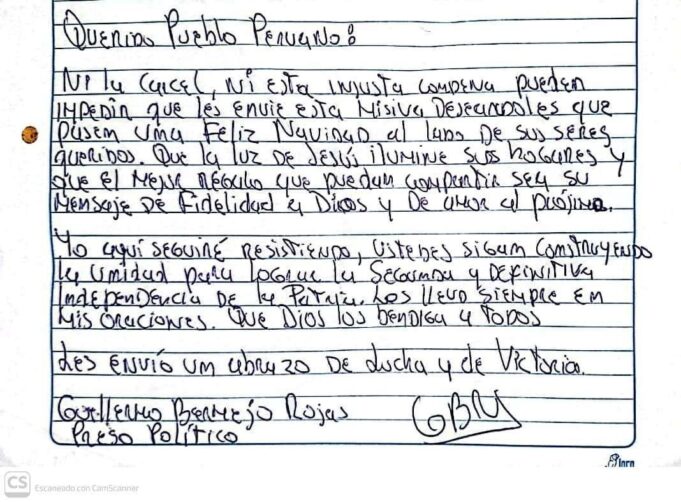 Querido Pueblo Peruano:
Ni la carcel, ni esta injusta condena pueden
impedir que les envie esta misiva deseandoles que
pasen una Feliz Navidad al lado de sus seres
queridos. Que la luz de Jesús ilumine sus hogares y
que el mejor regalo que puedan compartir sea su
mensaje de fidelidad a Dios y de amor al prójimo.
Yo aquí seguiré resistiendo, ustedes sigan construyendo
la unidad para lograr la Segunda y Definitiva
Independencia de la Patria. Los llevo siempre en
mis oraciones. Que Dios los bendiga a todos
Les envío un abrazo de lucha y de Victoria.
Guillermo Bermejo Rojas GBR
Preso Político
CS Escaneado con CamScanner